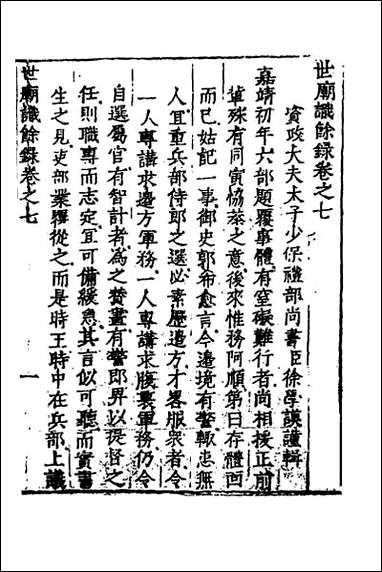 世廟識餘錄卷之七
資政大夫太子少保禮部尚書臣徐學謨謹輯
嘉靖初年六部題覆事體有窒礙難行者尚相援正前
輩殊有同寅協恭之意後來惟務阿順第曰存體面
而已姑記一事御史郭希愈言今邊境有警輒患無
人宜重兵部侍郎之選必素歷邊方才畧服衆者令
一人專講求邊方軍務一人專講求腹裏軍務仍令
自選屬官有智計者為之贊畫有警即畀以提督之
任則職專而志定宜可備緩急其言似可聽而實書
生之見吏部業釋從之而是時王時中在兵部上議
世廟識餘錄卷之七
一